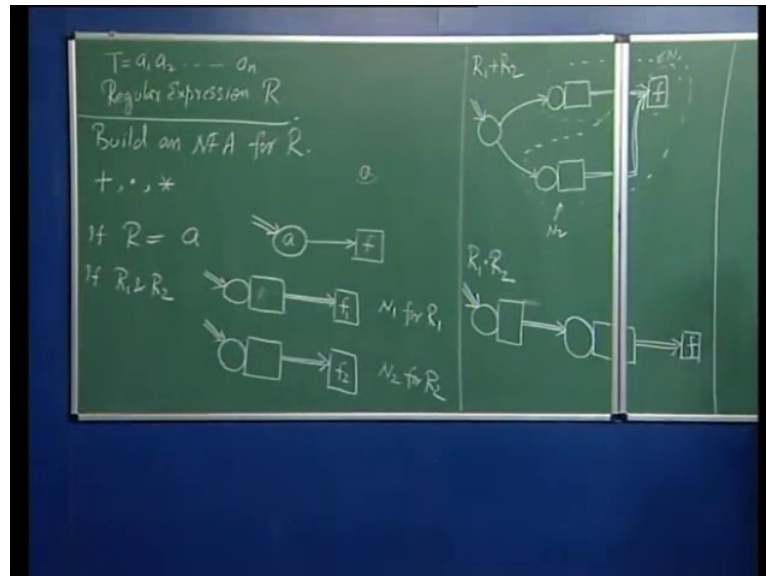 T = a₁ a₂ ----- aₙ
Regular Expression R
Build an NFA for R.
+, •, *
a
If R = a
a
f
If R₁ & R₂
f₁
N₁ for R₁
f₂
N₂ for R₂
R₁+R₂
N₁
f
N₂
R₁•R₂
f